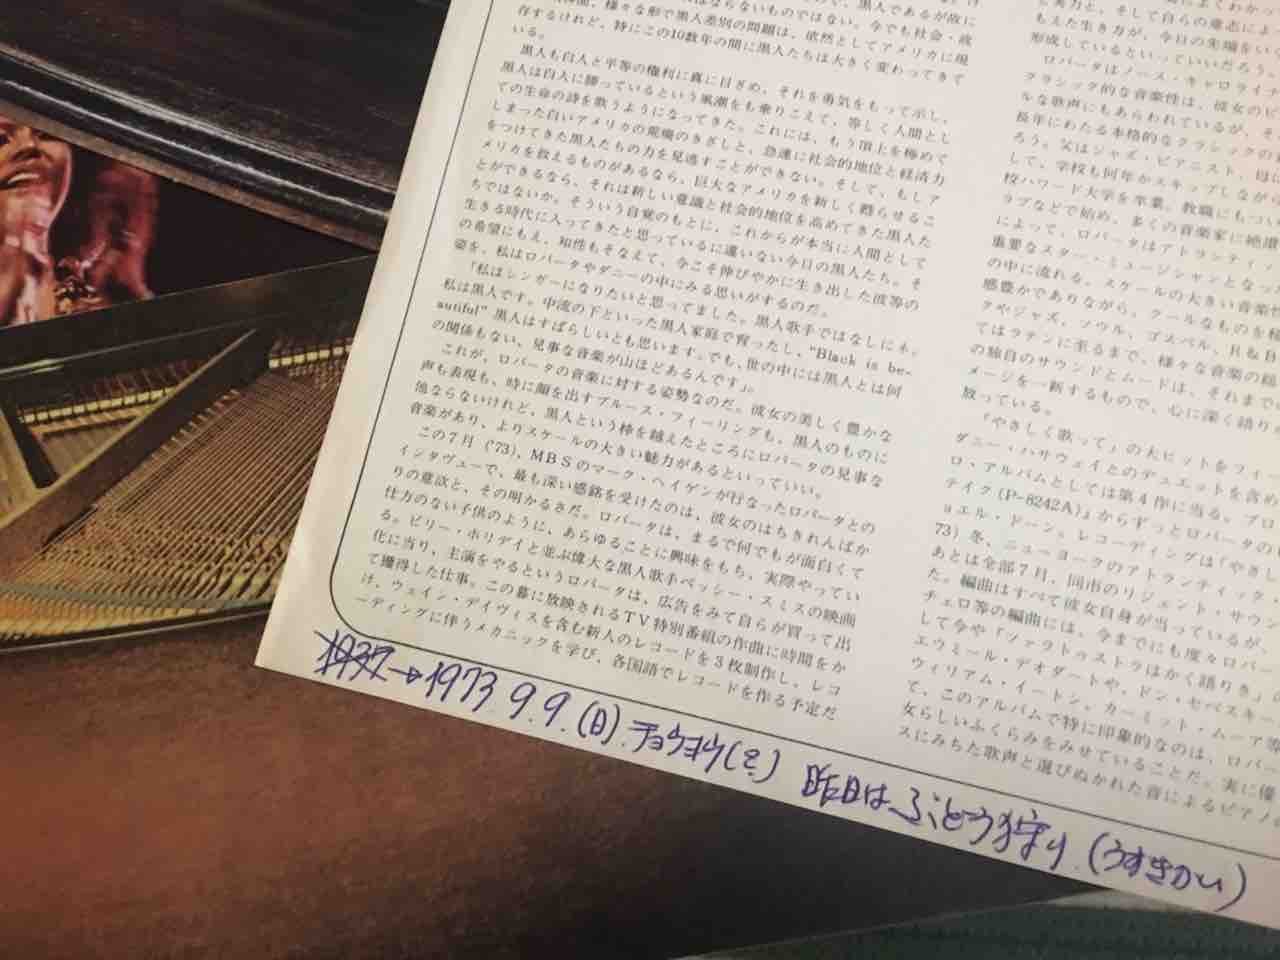 黒人であるが故に
様々な形で黒人差別の問題は、依然としてアメリカに現
存するけれど、特にこの10数年の間に黒人たちは大きく変わってきて
いる。
黒人も白人と平等の権利に真に目ざめ、それを勇気をもって示し、
黒人は白人に勝っているという風潮をも乗りこえて、等しく人間とし
ての生命の詩を歌うようになってきた。これには、もう頂上を極めて
しまった白いアメリカの荒廃のきざしと、急速に社会的地位と経済力
をつけてきた黒人たちの力を見逃すことができない。そして、もしア
メリカを救えるものがあるなら、巨大なアメリカを新しく甦らせるこ
とができるなら、それは新しい意識と社会的地位を高めてきた黒人た
ちではないか。そういう自覚のもとに、これからが本当に人間として
生きる時代に入ってきたと思っているに違いない今日の黒人たち。そ
の希望にもえ、知性もそなえて、今こそ伸びやかに生き出した彼等の
姿を、私はロバータやダニーの中にみる思いがするのだ。
「私はシンガーになりたいと思ってました。黒人歌手ではなしにネ。
私は黒人です。中流の下といった黒人家庭で育ったし、“Black is be-
autiful” 黒人はすばらしいとも思います。でも、世の中には黒人とは何
の関係もない、見事な音楽が山ほどあるんです」。
これが、ロバータの音楽に対する姿勢なのだ。彼女の美しく豊かな
声も表現も、時に顔を出すブルース・フィーリングも、黒人のものに
他ならないけれど、黒人という枠を越えたところにロバータの見事な
音楽があり、よりスケールの大きい魅力があるといっていい。
この7月('73)、MBSのマーク・ヘイゲンが行なったロバータとの
インタヴューで、最も深い感銘を受けたのは、彼女のはちきれんばか
りの意欲と、その明かるさだ。ロバータは、まるで何でもが面白くて
仕方のない子供のように、あらゆることに興味をもち、実際やってい
る。ビリー・ホリデイと並ぶ偉大な黒人歌手ベッシー・スミスの映画
化に当り、主演をやるというロバータは、広告をみて自らが買って出
て獲得した仕事。この幕に放映されるTV特別番組の作曲に時間をか
け、ウェイン・デイヴィスを含む新人のレコードを3枚制作し、レコ
ーディングに伴うメカニックを学び、各国語でレコードを作る予定だ
実力と、そして自らの意志によ
もえた生き方が、今日の先端をい
形成しているといっていいだろう。
ロバータはノース・キャロライナ
クラシック的な音楽性は、彼女のピ
ルな歌声にもあらわれているが、そ
長年にわたる本格的なクラシックの
ろう。父はジャズ・ピアニスト、母は
して、学校も何年かスキップしながら
校ハワード大学を卒業。教職にもつい
ラブなどで始め、多くの音楽家に絶讃
によって、ロバータはアトランティッ
重要なスター・ミュージシャンとなっ
の中に流れる、スケールの大きい音楽性
感豊かでありながら、クールなものを秘
クやジャズ、ソウル、ゴスペル、R&B
てはラテンに至るまで、様々な音楽の経
の独自のサウンドとムードは、それまで
メージを一新するもので、心に深く語り
放っている。
「やさしく歌って」の大ヒットをフィー
ダニー・ハサウェイとのデュエットを含め
ロ・アルバムとしては第4作に当る。プロ
テイク(P-8242A)」からずっとロバータの
ョエル・ドーン。レコーディングは「やさし
73)冬、ニューヨークのアトランティック・
あとは全部7月、同市のリジェント・サウン
た。編曲はすべて彼女自身が当っているが、
チェロ等の編曲には、今までにも度々ロバー
して今や「ツァラトゥストラはかく語りき」
エウミール・デオダートや、ドン・セベスキー
ウィリアム・イートン、カーミット・ムーア等
て、このアルバムで特に印象的なのは、ロバー
女らしいふくらみをみせていることだ。実に優
スにみちた歌声と選びぬかれた音によるピアノ
1937→1973. 9. 9. (日). チョウヨウ(を) 昨日はぶどう狩り. (うすきかい)